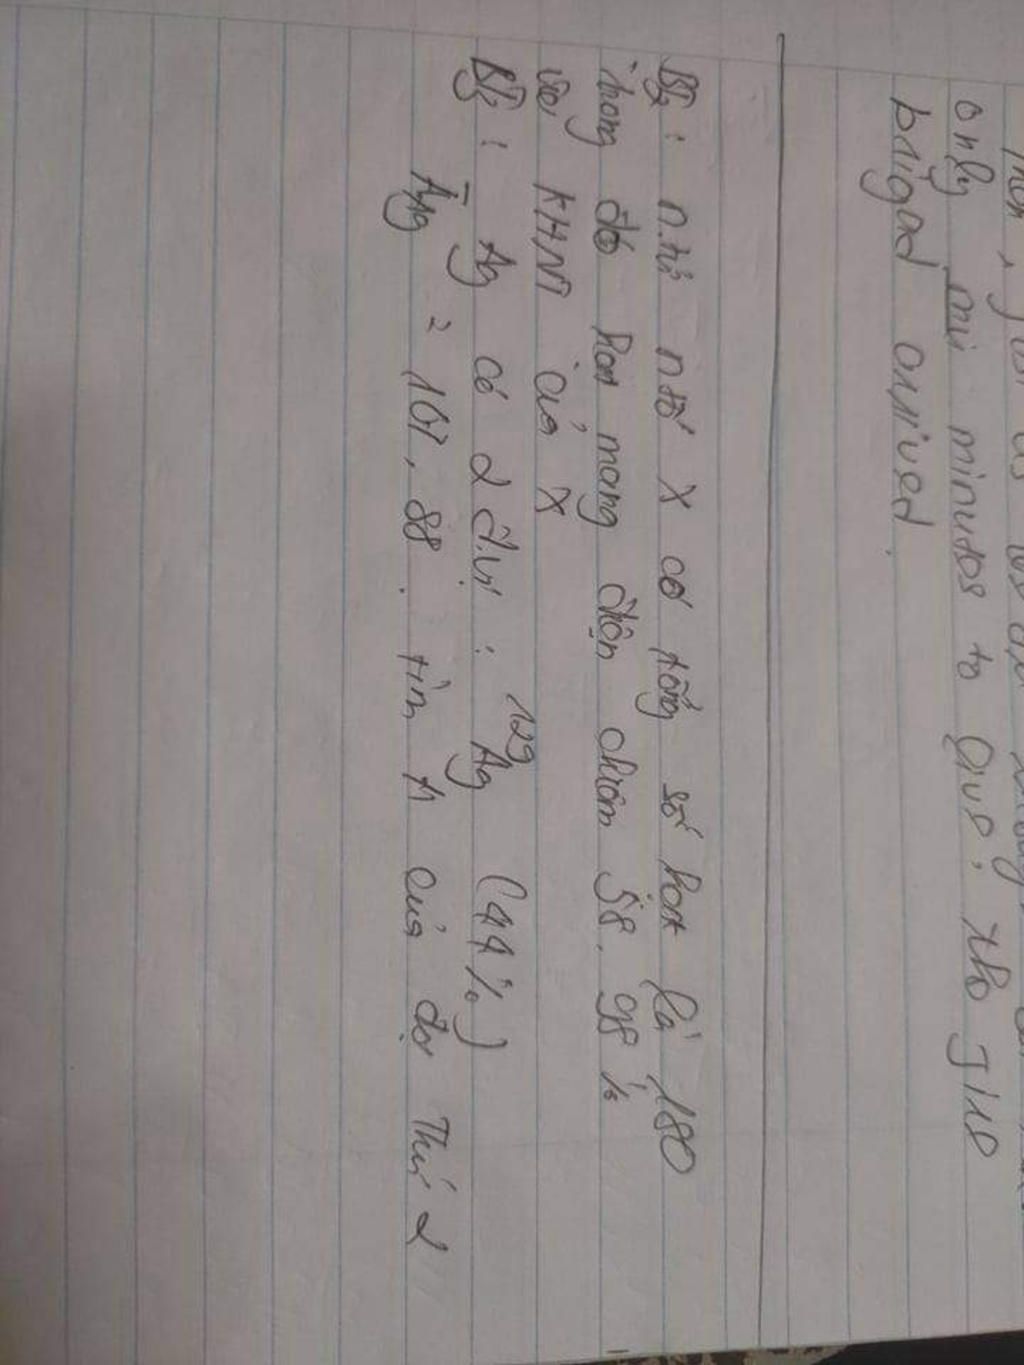 only mii minutes to give; the JIRE
brigad arrived.
BT2 : n.tử n.tố X có tổng số hạt là 180
trong đó hạt mang điện chiếm 58,98%
viết KHNT của X
BT3 : Ag có 2 đ.vị : 129Ag (44%)
A̅Ag = 107,88 . tìm A của đv Thứ 2